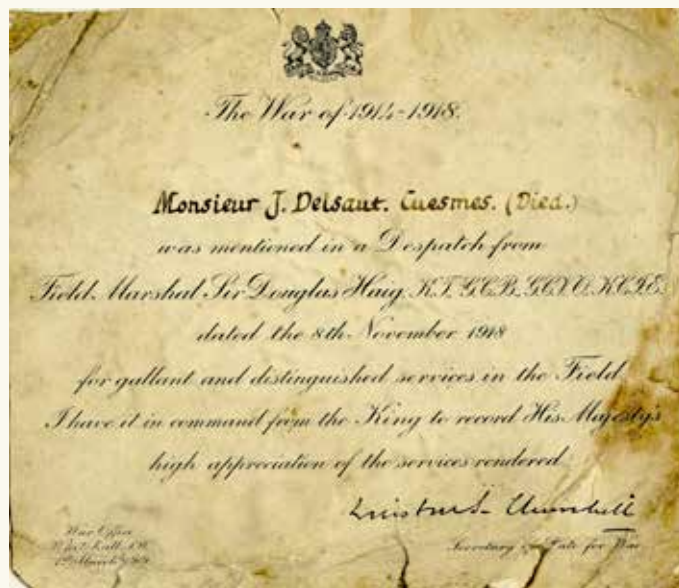 The War of 1914-1918.
Monsieur J. Delsaut. Cuesmes. (Died.)
was mentioned in a Despatch from
Field Marshal Sir Douglas Haig, K.T. G.C.B. G.C.V.O. K.C.I.E.
dated the 8th November 1918
for gallant and distinguished services in the Field.
I have it in command from the King to record His Majesty's
high appreciation of the services rendered.
Winston S. Churchill
Secretary of State for War
War Office
Whitehall, S.W.
1st March 1919